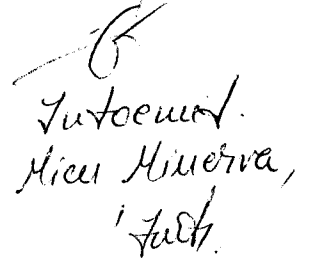 Intocmit.
Micu Minerva,